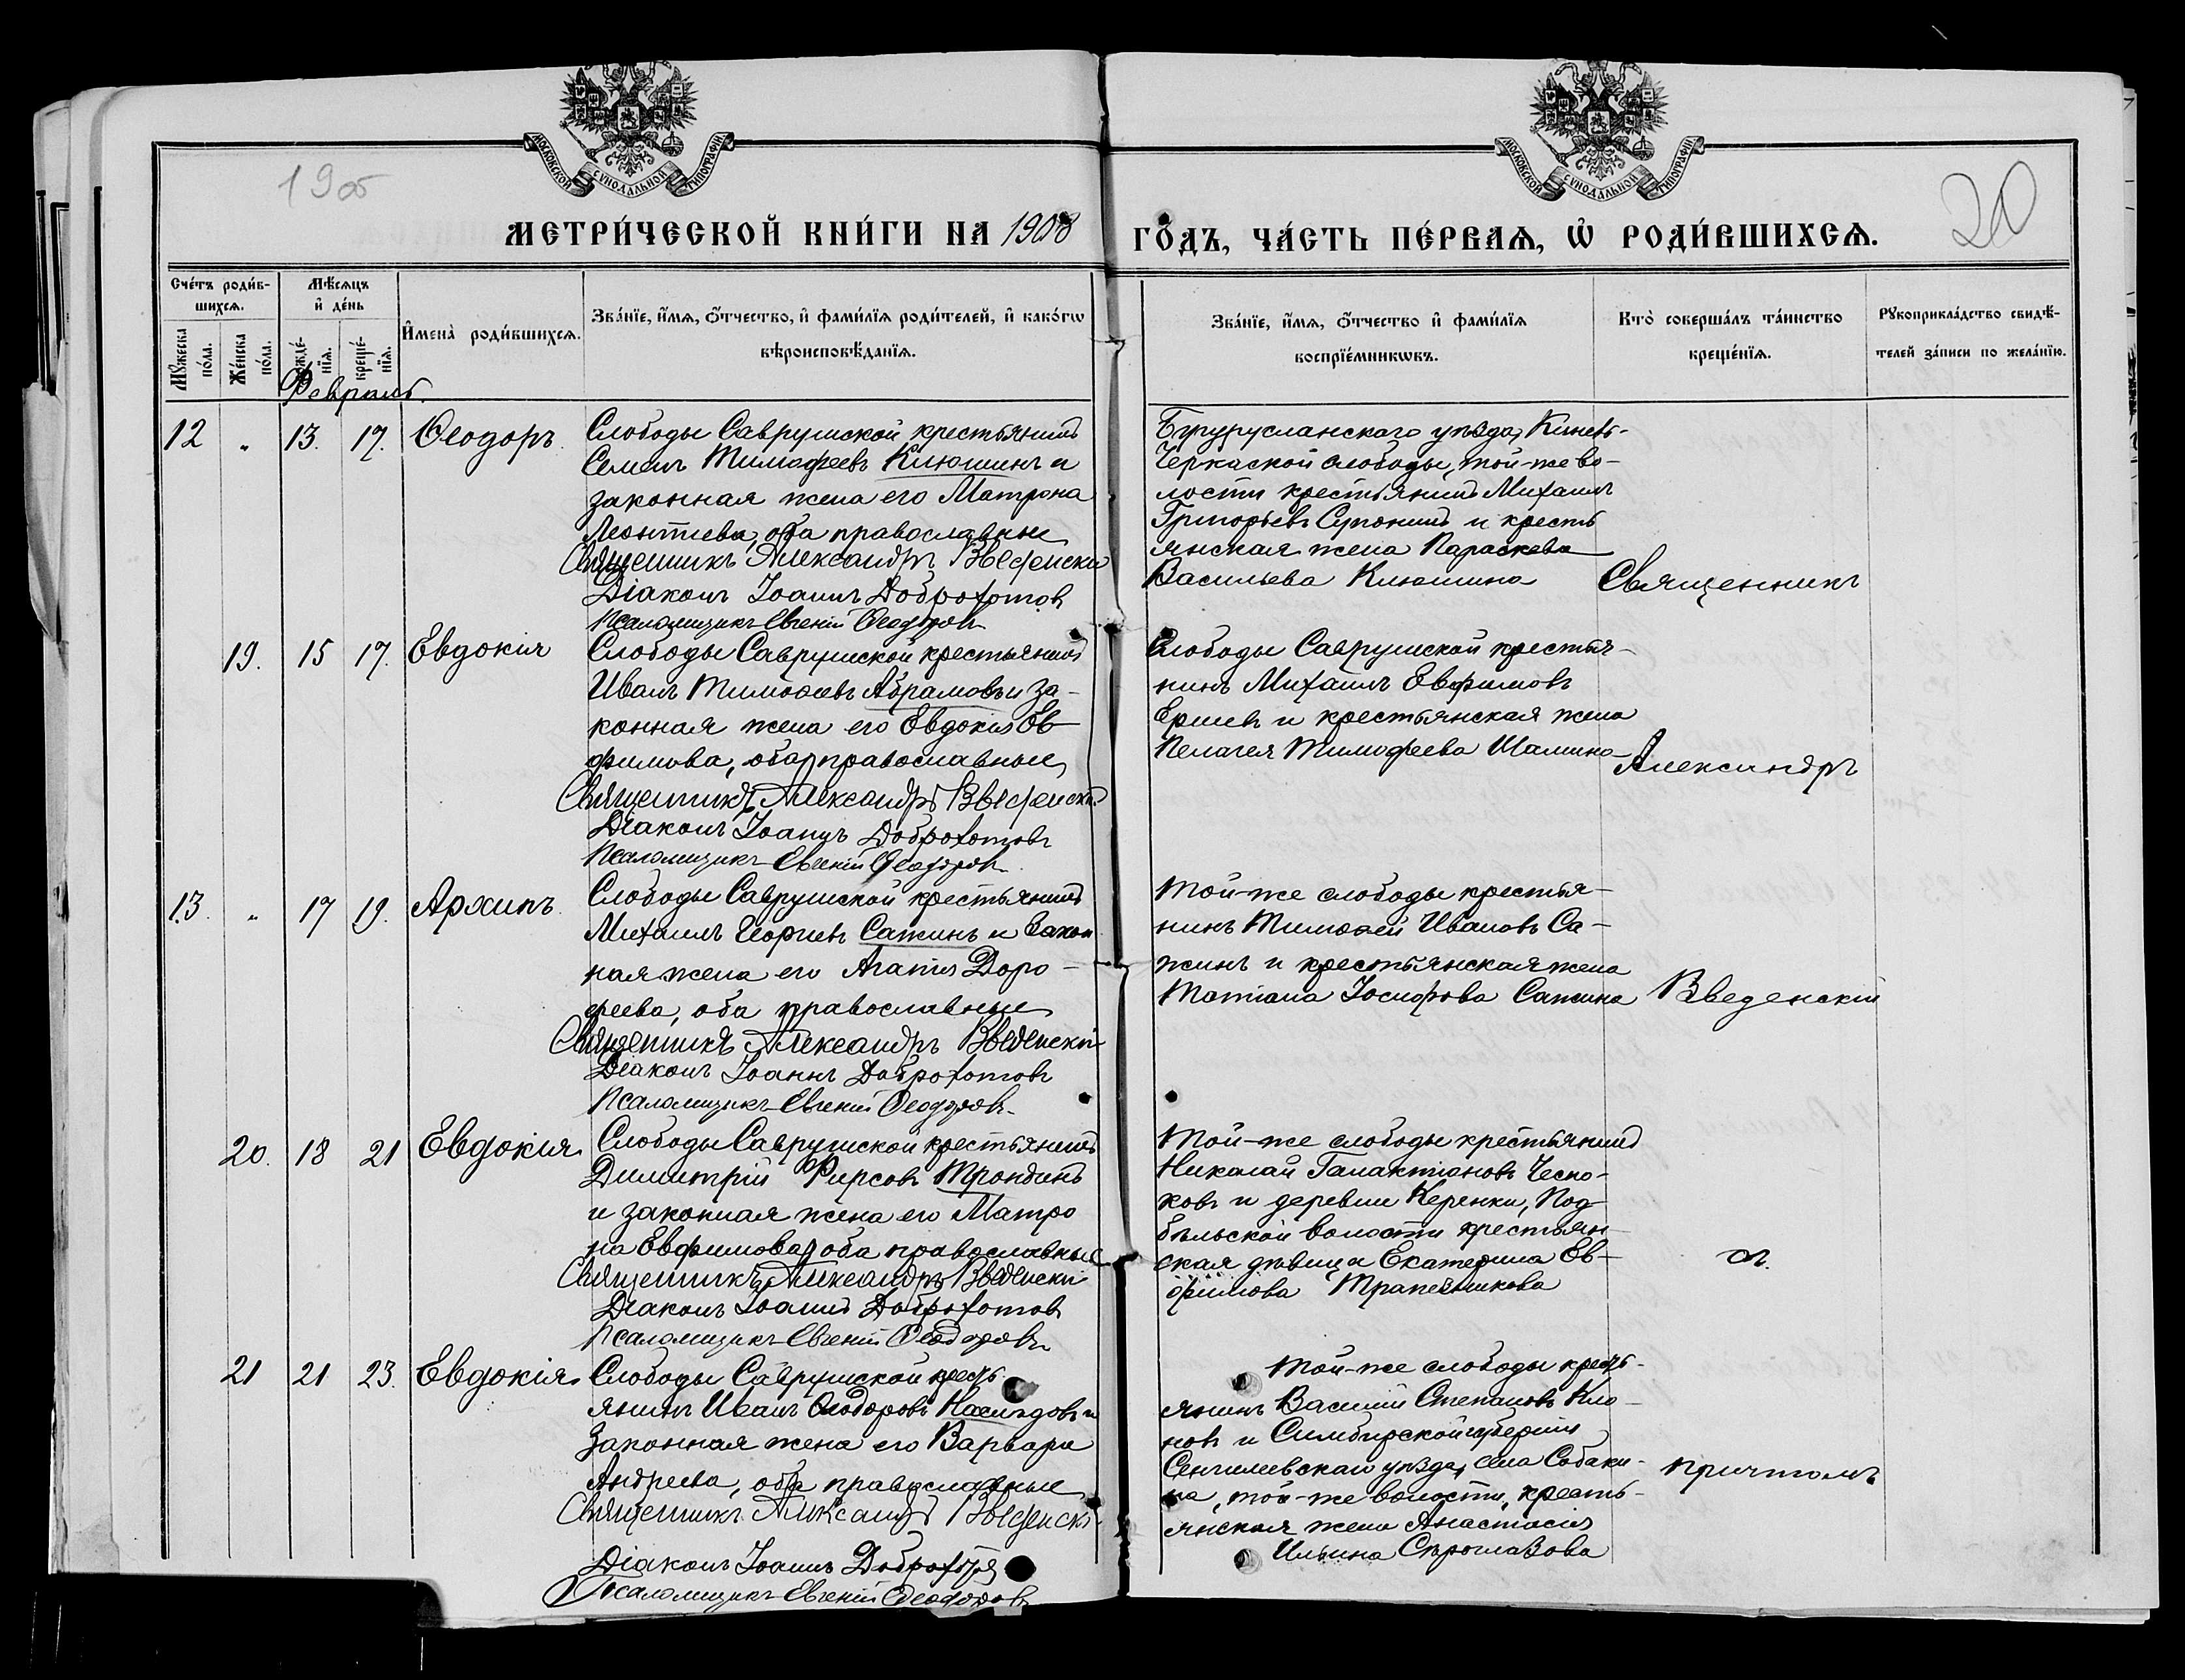 МОСКОВСКОЙ СѴНОДАЛЬНОЙ ТИПОГРАФІИ.
МОСКОВСКОЙ СѴНОДАЛЬНОЙ ТИПОГРАФІИ.
20
МЕТРИ́ЧЕСКОЙ КНИ́ГИ НА 1908
ГО́ДЪ, ЧА́СТЬ ПЕ́РВАѦ, Ѡ҆ РОДИ́ВШИХСѦ.
Сче́тъ роди́в-
шихсѧ.
Мꙋ́жеска по́ла.
Же́нска по́ла.
Мѣ́сѧцъ
и҆ де́нь
рожде́-нїѧ.
креще́-нїѧ.
И҆мена̀ роди́вшихсѧ.
Зва́нїе, и҆́мѧ, ѻ҆́тчество, и҆ фами́лїѧ роди́телей, и҆ како́гѡ
вѣроисповѣ́данїѧ.
Зва́нїе, и҆́мѧ, ѻ҆́тчество и҆ фами́лїѧ
воспрїе́мникѡвъ.
Кто̀ соверша́лъ та́инство
креще́нїѧ.
Рꙋкоприкла́дство свидѣ́-
телей за́писи по жела́нїю.
Февраль.
12 " 13. 17. Ѳеодоръ.
Слободы Саврушской крестьянинъ
Семенъ Тимофеевъ Клюшинъ и
законная жена его Матрона
Леонтиева, оба православные
Священникъ Александръ Введенскій
Діаконъ Іоаннъ Доброхотовъ
Псаломщикъ Евгеній Ѳеодоровъ
Бугурусланскаго уѣзда, Кинель-
Черкаской слободы, той-же во-
лости крестьянинъ Михаилъ
Григорьевъ Супонинъ и кресть
янская жена Параскева
Васильева Клюшина
Священникъ
19. 15 17. Евдокія
Слободы Саврушской крестьянинъ
Иванъ Тимоѳеевъ Абрамовъ и за-
конная жена его Евдокія Ев-
фимова, оба православные
Священникъ Александръ Введенскій
Діаконъ Іоаннъ Доброхотовъ
Псаломщикъ Евгеній Ѳеодоровъ
Слободы Саврушской крестья-
нинъ Михаилъ Евфимовъ
Ершевъ и крестьянская жена
Пелагея Тимофеева Шалина
Александръ
13. " 17 19. Архипъ.
Слободы Саврушской крестьянинъ
Михаилъ Георгиевъ Сажинъ и закон
ная жена его Агапия Доро-
феева, оба православные
Священникъ Александръ Введенскій
Діаконъ Іоаннъ Доброхотовъ
Псаломщикъ Евгеній Ѳеодоровъ
Той-же слободы крестья-
нинъ Тимоѳей Ивановъ Са-
жинъ и крестьянская жена
Татіана Іосифова Сажина
Введенскій
20. 18 21 Евдокія.
Слободы Саврушской крестьянинъ
Димитрій Фирсовъ Трондинъ
и законная жена его Матро
на Евфимова, оба православные
Священникъ Александръ Введенскій
Діаконъ Іоаннъ Доброхотовъ
Псаломщикъ Евгеній Ѳеодоровъ
Той-же слободы крестьянинъ
Николай Галактіоновъ Чесно-
ковъ и деревни Керенки, Под
бѣльской волости крестьян-
ская дѣвица Екатерина Ев-
фимова Трапезникова
съ.
21 21 23. Евдокія.
Слободы Саврушской кресть
янинъ Иванъ Ѳеодоровъ Наслѣдовъ и
законная жена его Варвара
Андреева, оба православные
Священникъ Александръ Введенскій
Діаконъ Іоаннъ Доброхотовъ
Псаломщикъ Евгеній Ѳеодоровъ
Той-же слободы кресть-
янинъ Василій Степановъ Кло-
новъ и Симбирской губерніи
Сенгилеевскаго уѣзда, села Собаки-
на, той-же волости, кресть-
янская жена Анастасія
Ильина Сѣроглазова
причтомъ.